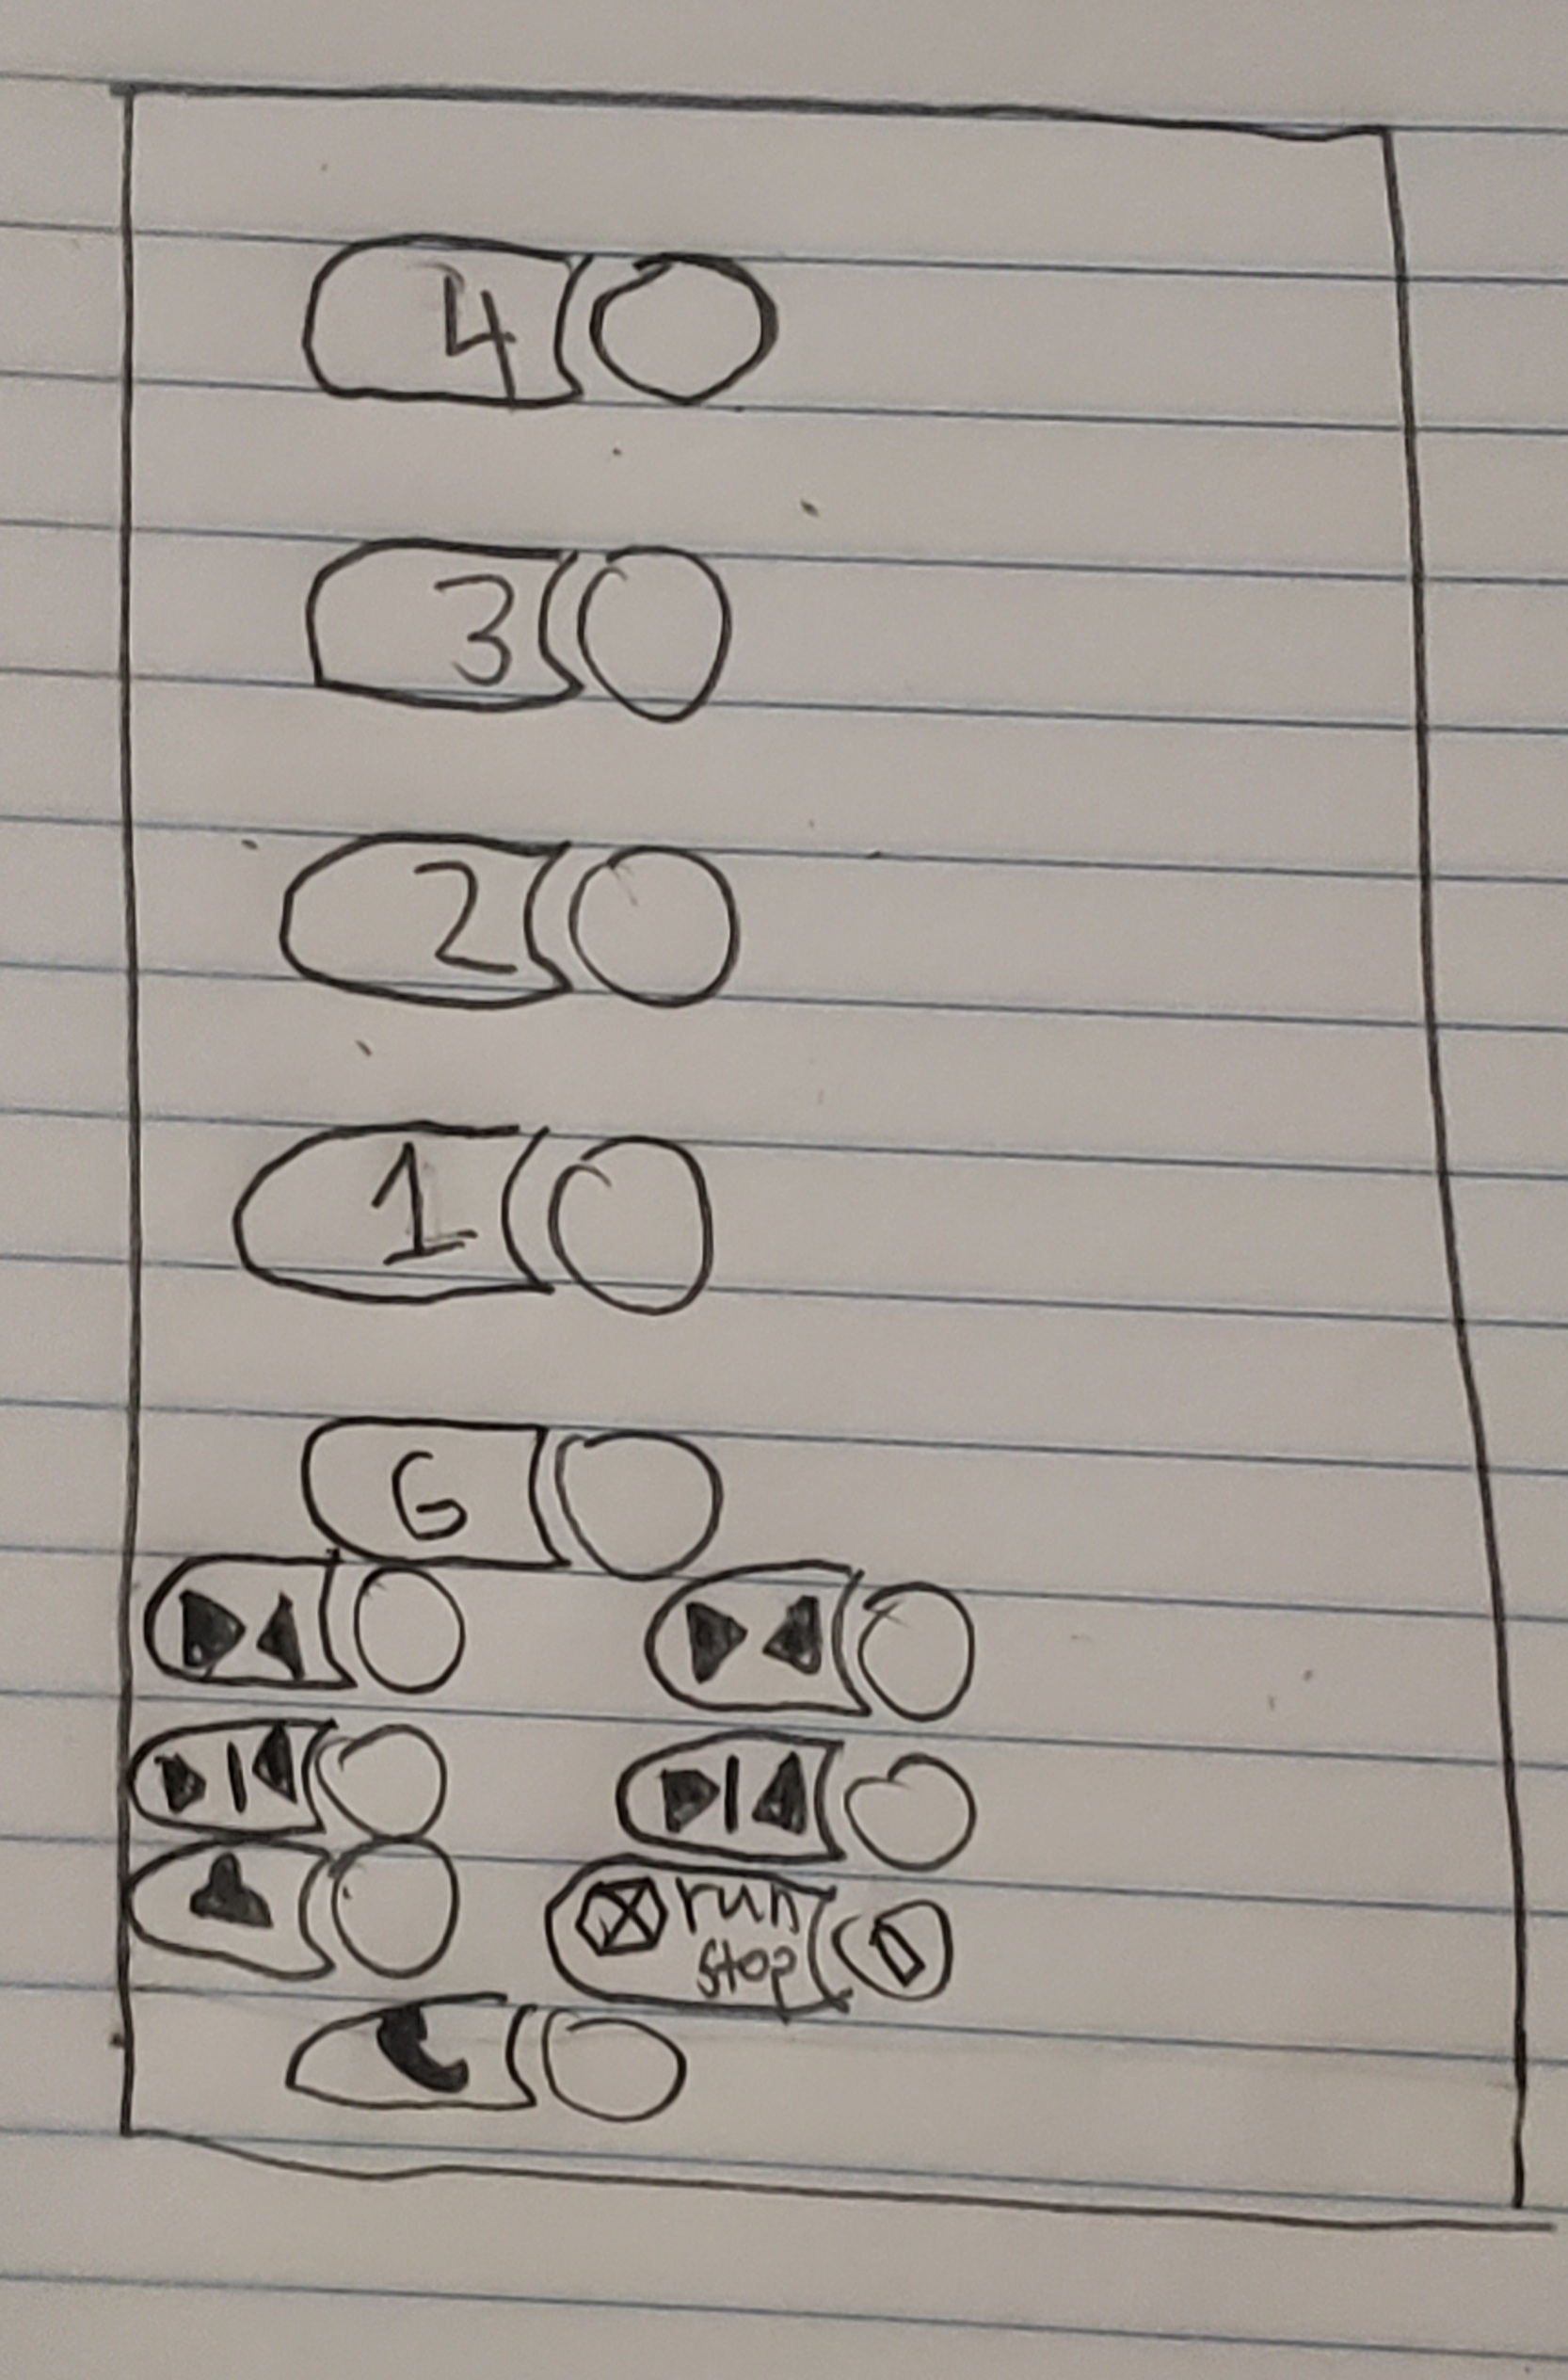 4
3
2
1
G
run
stop